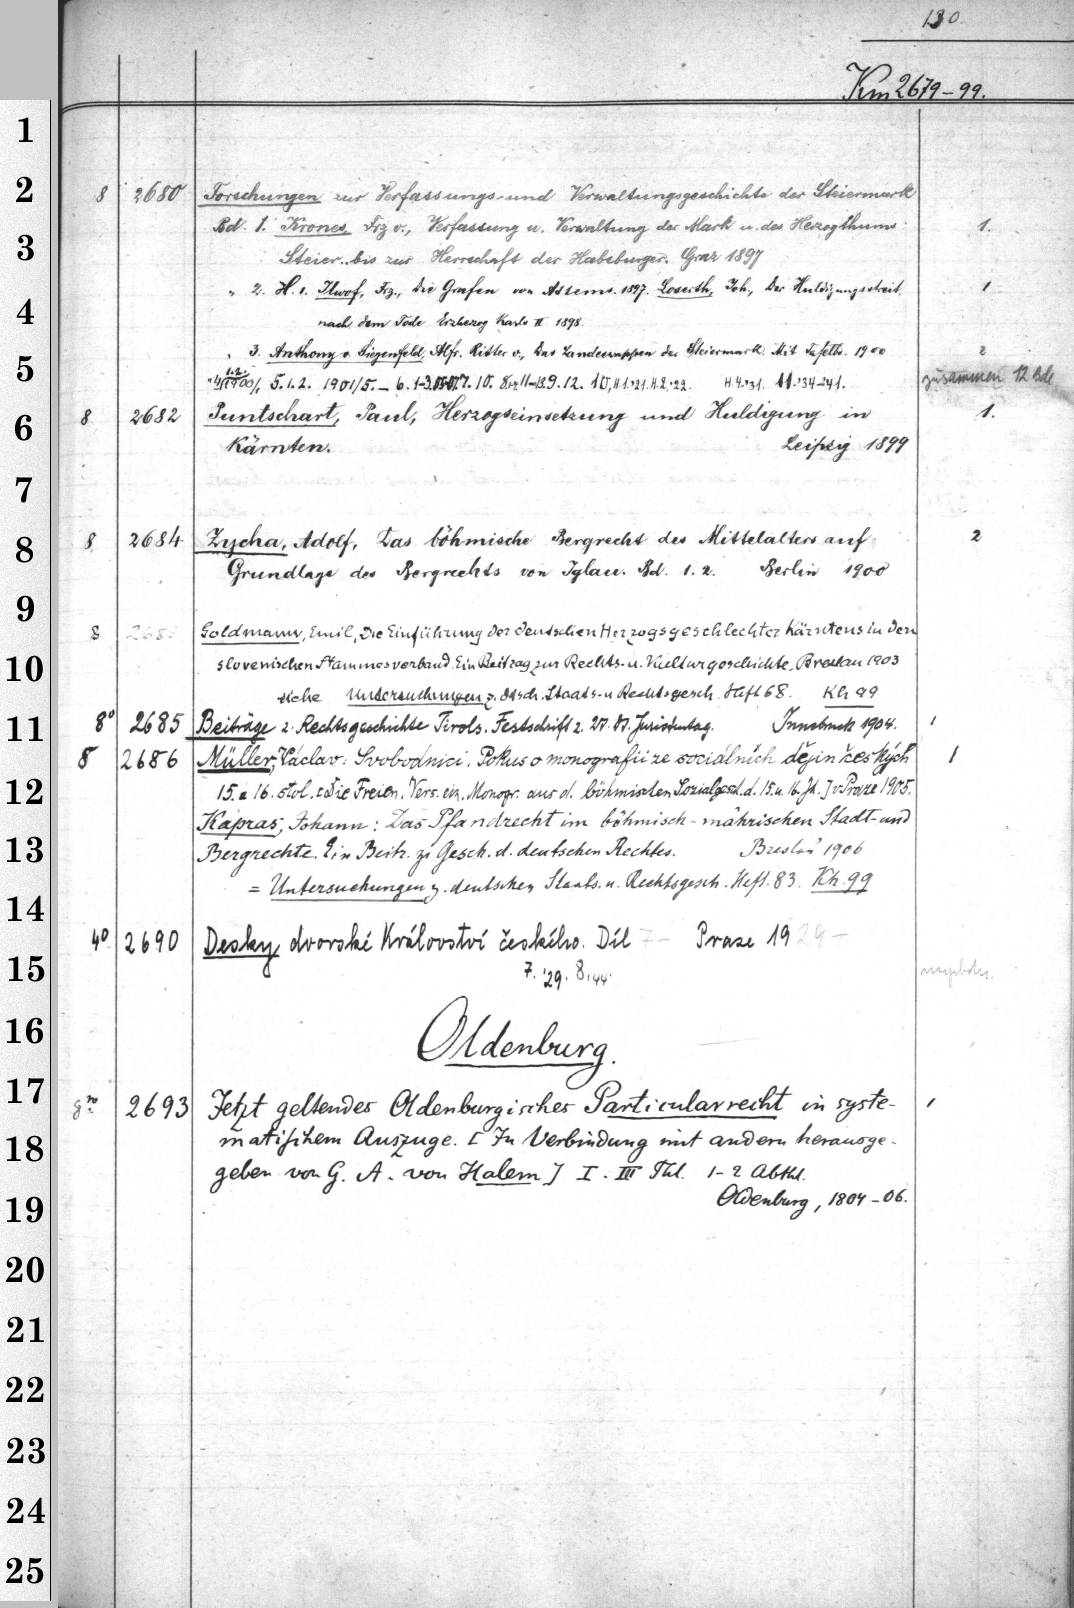 130
Km 2679-99.
1
2
3
4
5
6
7
8
9
10
11
12
13
14
15
16
17
18
19
20
21
22
23
24
25
8 2680 Forschungen zur Verfassungs- und Verwaltungsgeschichte der Steiermark
Bd. 1. Krones, Frz v., Verfassung u. Verwaltung der Mark u. des Herzogthums 1.
Steier.. bis zur Herrschaft der Habsburger. Graz 1897
" 2. H. 1. Ilwof, Frz., Die Grafen von Attems. 1897. Loserth, Joh., Der Huldigungsstreit 1
nach dem Tode Erzherzog Karls II 1898.
" 3. Anthony v. Siegenfeld, Alfr. Ritter v., Das Landeswappen der Steiermark. Mit Tafelb. 1900 2
5.1.2. 1901/5. – 6. 10. 9.12. H.4.'31. 11.'34-'41. zusammen 12 Bde
8 2682 Puntschart, Paul, Herzogseinsetzung und Huldigung in 1.
Kärnten. Leipzig 1899
8 2684 Zycha, Adolf, Das böhmische Bergrecht des Mittelalters auf 2
Grundlage des Bergrechts von Iglau. Bd. 1. 2. Berlin 1900
8 2685 Goldmann, Emil, Die Einführung der deutschen Herzogsgeschlechter Kärntens in den
slovenischen Stammesverband. Ein Beitrag zur Rechts- u. Kulturgeschichte. Breslau 1903
siehe Untersuchungen z. dtsch. Staats- u Rechtsgesch. Heft 68. Kh 99
8° 2685 Beiträge z. Rechtsgeschichte Tirols. Festschrift z. 27. Dt. Juristentag. Innsbruck 1904. 1
8 2686 Müller, Václav: Svobodníci. Pokus o monografii ze sociálních dějin českých 1
15. a 16. stol. [Die Freien. Vers. ein. Monogr. aus d. böhmischen Sozialgesch. d. 15. u. 16. Jh.] v Praze 1905.
Kapras, Johann: Das Pfandrecht im böhmisch-mährischen Stadt- und
Bergrechte. Ein Beitr. z. Gesch. d. deutschen Rechtes. Breslau 1906
= Untersuchungen z. deutschen Staats. u. Rechtsgesch. Heft. 83. Kh. 99
4° 2690 Desky dvorské Království českého. Díl 7– Praze 1929–
7. '29. 8. '44.
Oldenburg.
2693 Jetzt geltendes Oldenburgisches Particularrecht in syste- 1
matischem Auszuge. [In Verbindung mit andern herausge-
geben von G. A. von Halem] I. III Thl. 1-2 Abthl.
Oldenburg, 1804-06.